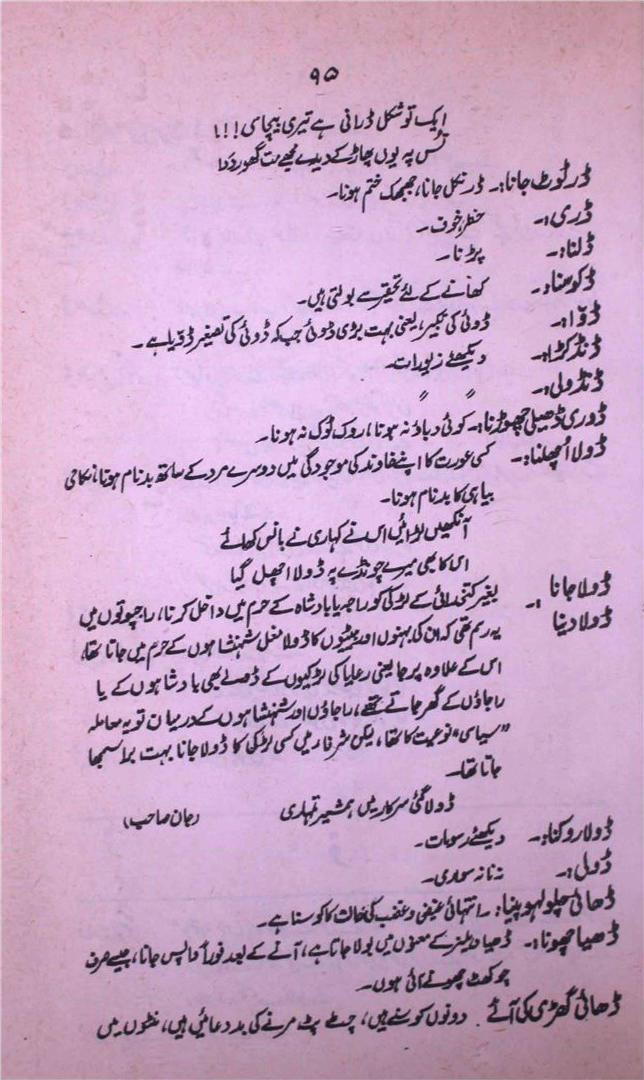 ۹۵
ایک تو شکل ڈرانی ہے تیری بیچای!!!
تس پہ یوں پھاڑ کے دیدے مجھے مت گھور ددا
ڈر ٹوٹ جانا:۔ ڈر نکل جانا، جھجھک ختم ہونا۔
ڈری:۔ خطر، خوف۔
ڈلنا:۔ پڑنا۔
ڈکوسنا:۔ کھانے کے لئے تحقیر سے بولتی ہیں۔
ڈوّا:۔ ڈوئی کی تکبیر، یعنی بہت بڑی ڈوئی جب کہ ڈوئی کی تصغیر ڈوّیا ہے۔
ڈنڈ کڑا:۔ دیکھئے زیورات۔
ڈنڈولی:۔ " "
ڈوری ڈھیلی چھوڑنا:۔ کوئی دباؤ نہ ہونا، روک ٹوک نہ ہونا۔
ڈولا اچھلنا:۔ کسی عورت کا اپنے خاوند کی موجودگی میں دوسرے مرد کے ساتھ بدنام ہونا، نکاحی
بیاہی کا بدنام ہونا۔
آنکھیں لڑائیں اس نے کہاری نے بانس کھائے
اس کا بھی میرے چونڈے پہ ڈولا اچھل گیا
ڈولا جانا
ڈولا دینا :۔ بغیر کتخدائی کے لڑکی کو راجہ یا بادشاہ کے حرم میں داخل کرنا، راجپوتوں میں
یہ رسم تھی کہ ان کی بہنوں اور بیٹیوں کا ڈولا مغل شہنشاہوں کے حرم میں جاتا تھا،
اس کے علاوہ پرجا یعنی رعایا کی لڑکیوں کے ڈولے بھی بادشاہوں کے یا
راجاؤں کے گھر جاتے تھے، راجاؤں اور شہنشاہوں کے درمیان تو یہ معاملہ
"سیاسی" نوعیت کا تھا، لیکن شرفار میں کسی لڑکی کا ڈولا جانا بہت برا سمجھا
جاتا تھا۔
ڈولا گئی سرکار میں ہمشیر تمہاری (جان صاحب)
ڈولا روکنا:۔ دیکھئے رسومات۔
ڈول:۔ زنانہ سواری۔
ڈھائی چلو لہو پینا:۔ انتہائی غیض و غضب کی حالت کا کوسنا ہے۔
ڈھیا چھونا:۔ ڈھیا دہلیز کے معنوں میں بولا جاتا ہے، آنے کے بعد فوراً واپس جانا، جیسے صرف
چوکھٹ چھونے آئی ہوں۔
ڈھائی گھڑی کی آئے۔ دونوں کوسنے ہیں، چٹ پٹ مرنے کی بددعائیں ہیں، منٹوں میں